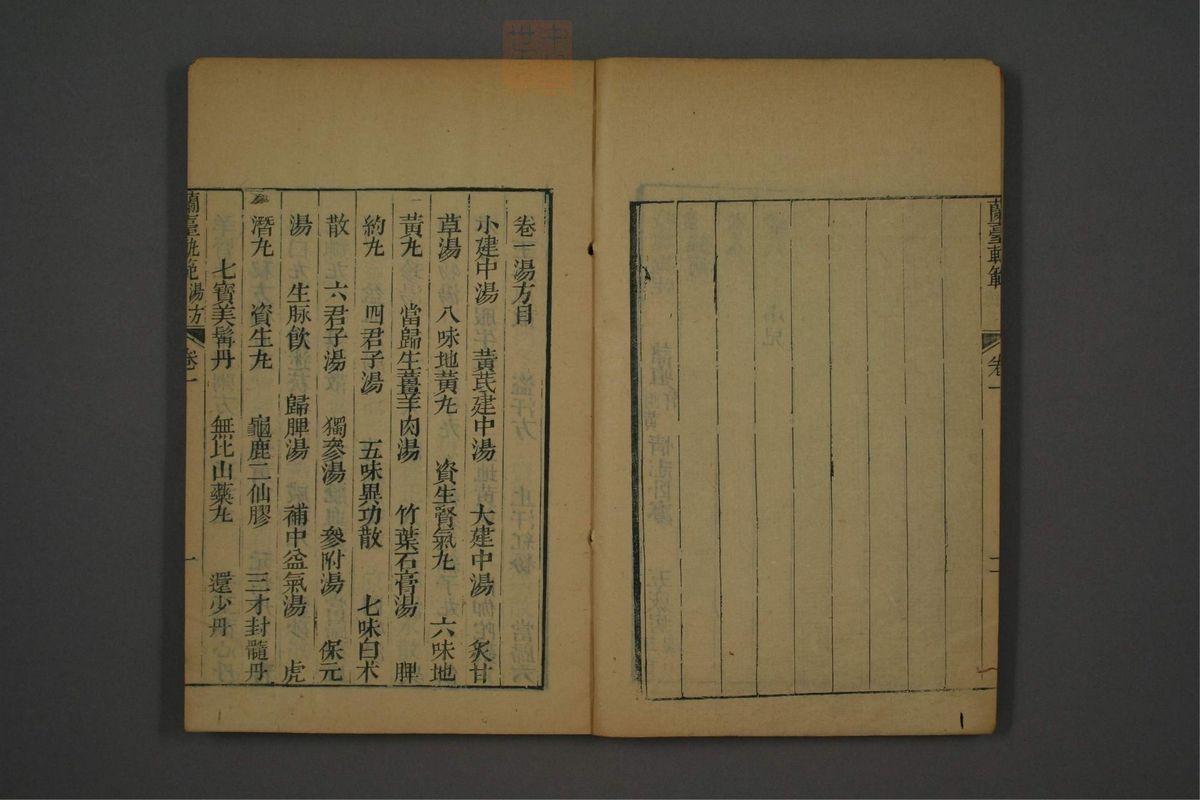 蘭臺軌範
卷一
卷一湯方目
小建中湯 黃芪建中湯 大建中湯 炙甘
草湯 八味地黃丸 資生腎氣丸 六味地
黃丸 當歸生薑羊肉湯 竹葉石膏湯 脾
約丸 四君子湯 五味異功散 七味白朮
散 六君子湯 獨參湯 參附湯 保元
湯 生脉飲 歸脾湯 補中益氣湯 虎
潛丸 資生丸 龜鹿二仙膠 三才封髓丹
七寶美髯丹 無比山藥丸 還少丹
蘭臺軌範湯方
卷一
一